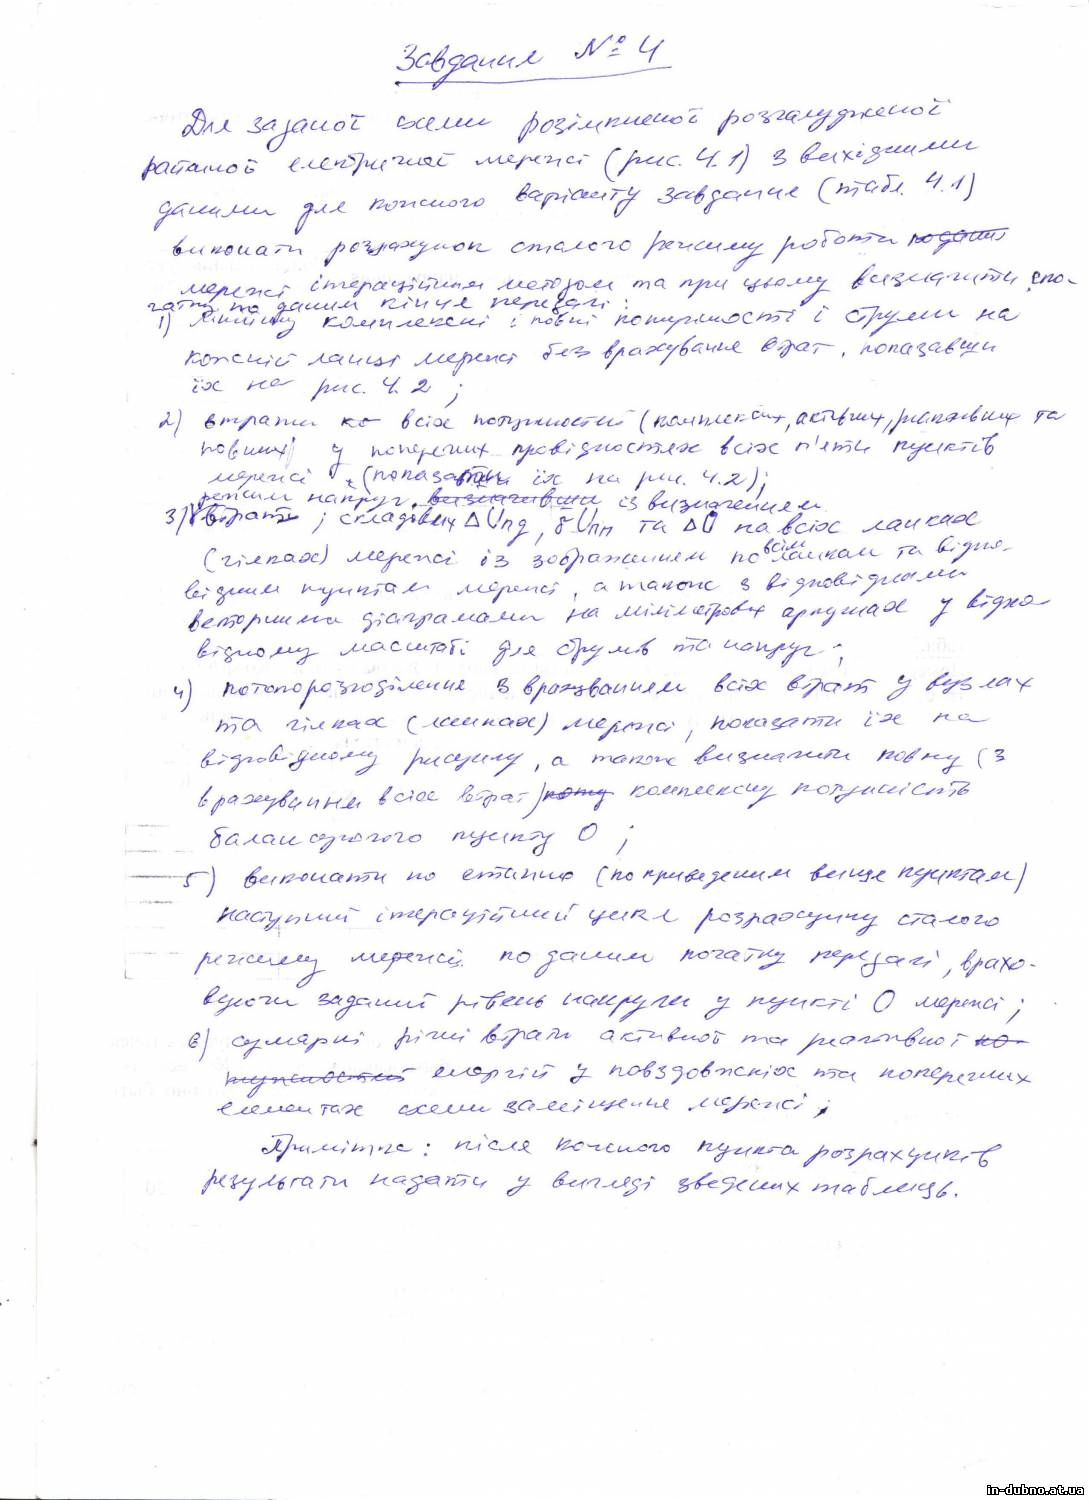 Завдання № 4
Для заданої схеми розімкненої розгалудженої
районої електричної мережі (рис. 4.1) з вихідними
даними для кожного варіанту завдання (табл. 4.1)
виконати розрахунок сталого режиму роботи
мережі ітераційним методом та при цьому визначити, спо-
чатку по даним кінця передачі:
1) комплексні і повні потужності і струми на
кожній ланці мережі без врахування втрат, показавши
їх на рис. 4.2;
2) втрати всіх потужностей (комплексних, активних, реактивних та
повних) у поперечних провідностях всіх п'яти пунктів
мережі (показати їх на рис. 4.2);
режим напруг із визначенням
3) складових ΔUпд, δUпп та ΔU на всіх ланках
(гілках) мережі із зображенням по всім ланкам та відпо-
відним пунктам мережі, а також з відповідними
векторними діаграмами на міліметрових аркушах у відпо-
відному масштабі для струмів та напруг;
4) потокорозподілення з врахуванням всіх втрат у вузлах
та гілках (ланках) мережі, показати їх на
відповідному рисунку, а також визначити повну (з
врахуванням всіх втрат) комплексну потужність
балансуючого пункту О;
5) виконати по етапно (по приведеним вище пунктам)
наступний ітераційний цикл розрахунку сталого
режиму мережі по даним початку передачі, врахо-
вуючи заданий рівень напруги у пункті О мережі;
6) сумарні річні втрати активної та реактивної
енергій у повздовжніх та поперечних
елементах схеми заміщення мережі;
Примітка: після кожного пункта розрахунків
результати надати у вигляді зведених таблиць.
in-dubno.at.ua